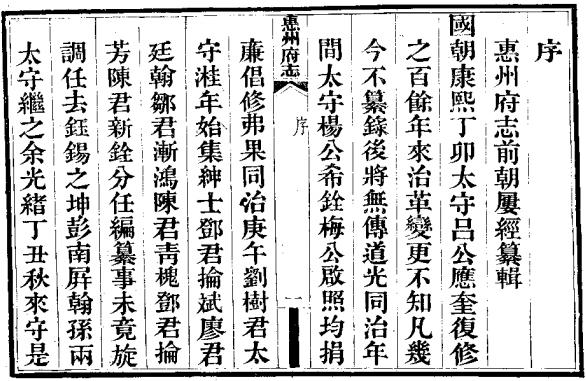 序
惠州府志前朝屢經纂輯
國朝康熙丁卯太守呂公應奎復修
之百餘年來治革變更不知凡幾
今不纂錄後將無傳道光同治年
間太守楊公希銓梅公啟照均捐
惠州府志
序
一
廉倡修弗果同治庚午劉樹君太
守溎年始集紳士鄧君掄斌廖君
廷翰鄒君漸鴻陳君靑槐鄧君掄
芳陳君新銓分任編纂事未竟旋
調任去鈺錫之坤彭南屛翰孫兩
太守繼之余光緒丁丑秋來守是